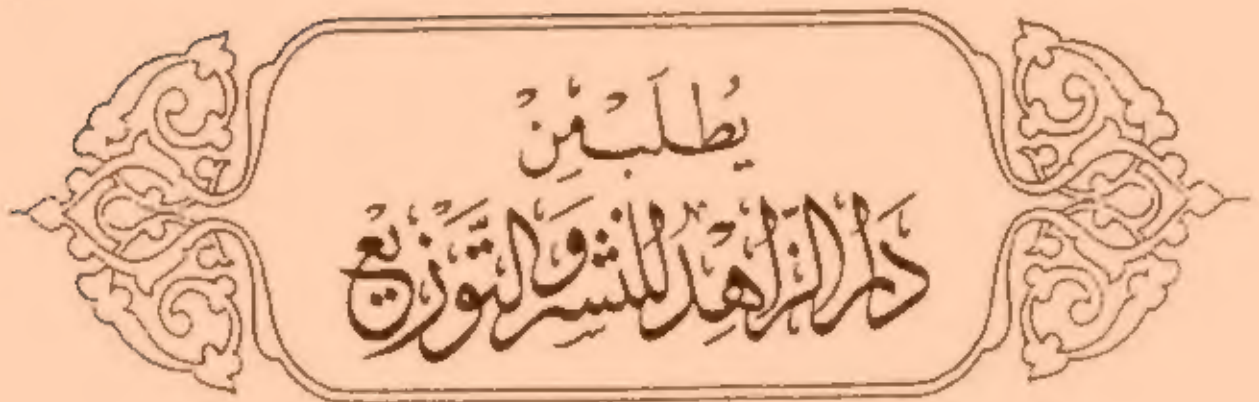 يُطلَبُ مِنْ
دَارِ الزَّاهِدِ لِلنَّشْرِ وَالتَّوْزِيْعِ